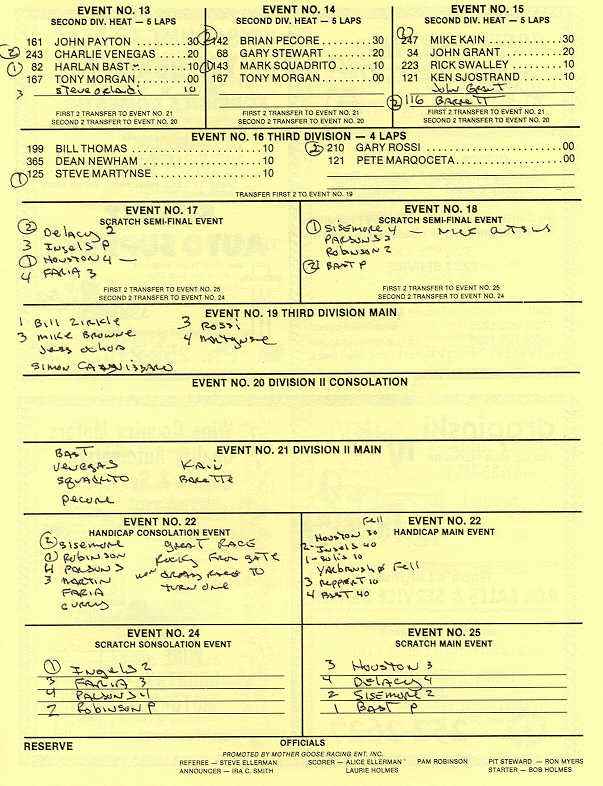 EVENT NO. 13
SECOND DIV. HEAT — 5 LAPS
161 JOHN PAYTON ........ 30
② 243 CHARLIE VENEGAS ... 20
① 82 HARLAN BAST ........ 10
167 TONY MORGAN ....... 00
3 Steve Orlandi 10
FIRST 2 TRANSFER TO EVENT NO. 21
SECOND 2 TRANSFER TO EVENT NO. 20
EVENT NO. 14
SECOND DIV. HEAT — 5 LAPS
② 142 BRIAN PECORE ........ 30
68 GARY STEWART ....... 20
① 143 MARK SQUADRITO .... 10
167 TONY MORGAN ....... 00
FIRST 2 TRANSFER TO EVENT NO. 21
SECOND 2 TRANSFER TO EVENT NO. 20
EVENT NO. 15
SECOND DIV. HEAT — 5 LAPS
247 MIKE KAIN ............ 30
34 JOHN GRANT ......... 20
223 RICK SWALLEY ........ 10
121 KEN SJOSTRAND ...... 10
John Grant
② 116 Barrett
FIRST 2 TRANSFER TO EVENT NO. 21
SECOND 2 TRANSFER TO EVENT NO. 20
EVENT NO. 16 THIRD DIVISION — 4 LAPS
199 BILL THOMAS .................... 10
365 DEAN NEWHAM .................. 10
① 125 STEVE MARTYNSE ................ 10
② 210 GARY ROSSI ..................... 00
121 PETE MARQOCETA ................ 00
TRANSFER FIRST 2 TO EVENT NO. 19
EVENT NO. 17
SCRATCH SEMI-FINAL EVENT
② Delacy 2
3 Ingels P
① Houston 4 —
4 FARIA 3
FIRST 2 TRANSFER TO EVENT NO. 25
SECOND 2 TRANSFER TO EVENT NO. 24
EVENT NO. 18
SCRATCH SEMI-FINAL EVENT
① Sisemore 4 —
PARSONS 3
Robinson 2
② BAST P
FIRST 2 TRANSFER TO EVENT NO. 25
SECOND 2 TRANSFER TO EVENT NO. 24
EVENT NO. 19 THIRD DIVISION MAIN
1 Bill Zirkle
3 Mike Browne
Jess Ochoa
Simon
3 Rossi
4 Martynse
EVENT NO. 20 DIVISION II CONSOLATION
EVENT NO. 21 DIVISION II MAIN
BAST
VENEGAS
SQUADRITO
Pecore
KAIN
BARETTE
EVENT NO. 22
HANDICAP CONSOLATION EVENT
② Sisemore
① Robinson
4 PARSONS
3 MARTIN
FARIA
CURRY
GREAT RACE
Rocky From GATE
won DRAG RACE TO
TURN ONE
EVENT NO. 22
HANDICAP MAIN EVENT
Fell
Houston 30
2 - Ingels 40
1 - Solis 10
Yarbrough Fell
3 Reppert 10
4 BAST 40
EVENT NO. 24
SCRATCH SONSOLATION EVENT
① Ingels 2
3 FARIA 3
4 PARSONS 4
2 Robinson P
EVENT NO. 25
SCRATCH MAIN EVENT
3 Houston 3
4 DELACY 4
2 SISEMORE 2
1 BAST P
RESERVE
OFFICIALS
PROMOTED BY MOTHER GOOSE RACING ENT. INC.
REFEREE — STEVE ELLERMAN SCORER — ALICE ELLERMAN PAM ROBINSON PIT STEWARD — RON MYERS
ANNOUNCER — IRA C. SMITH LAURIE HOLMES STARTER — BOB HOLMES